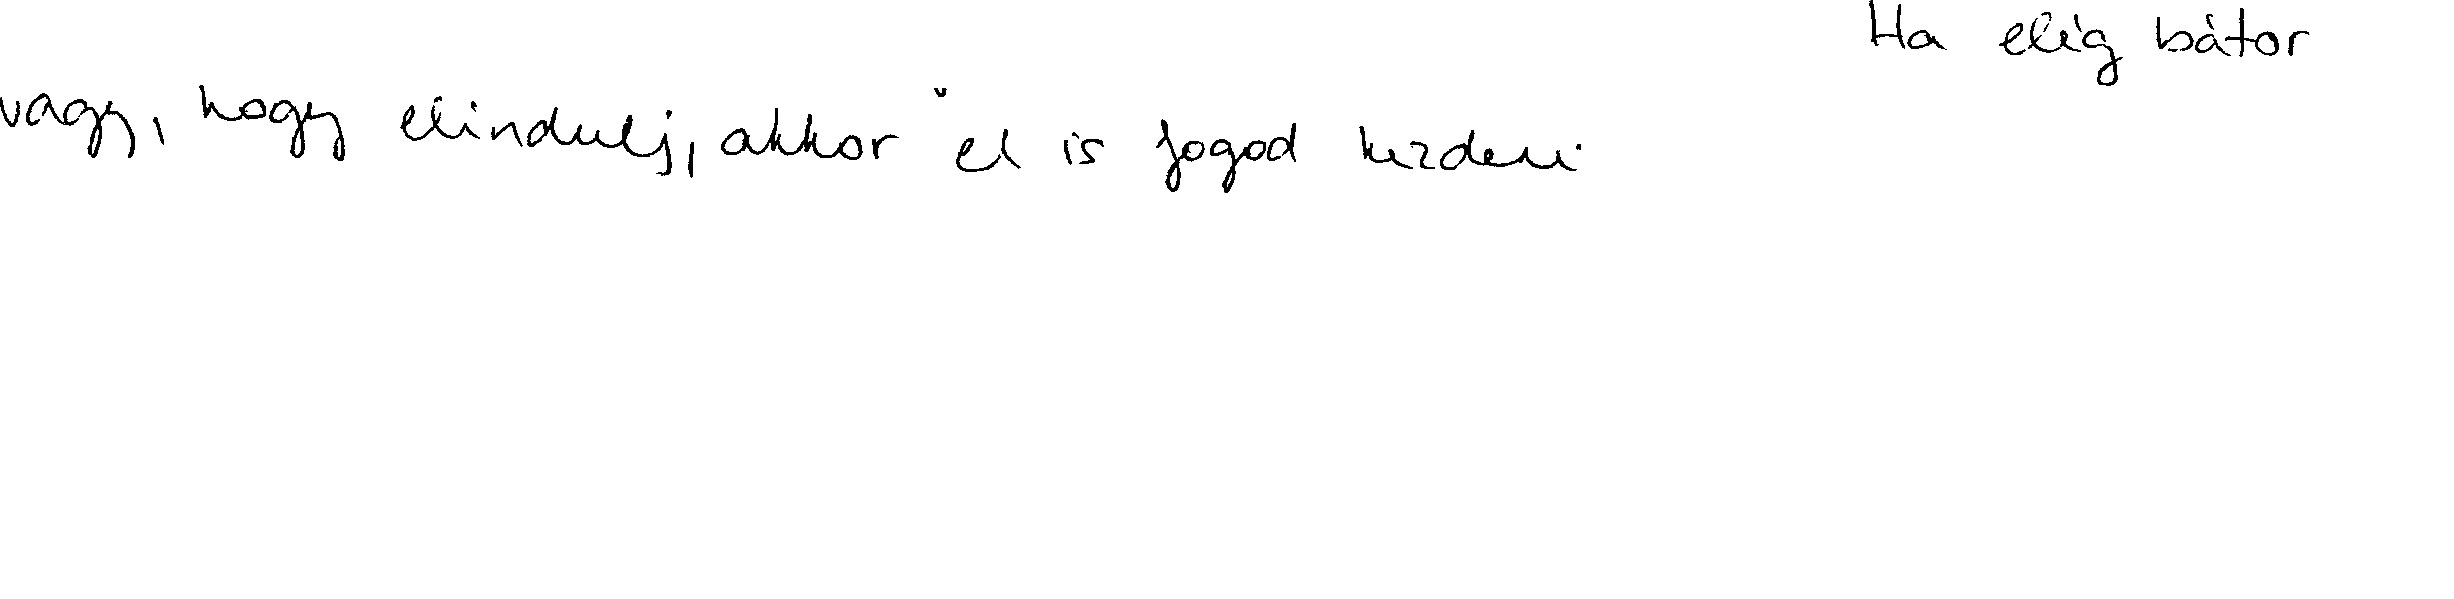 Ha elég bátor
vagy, hogy elindulj, akkor el is fogod kezdeni